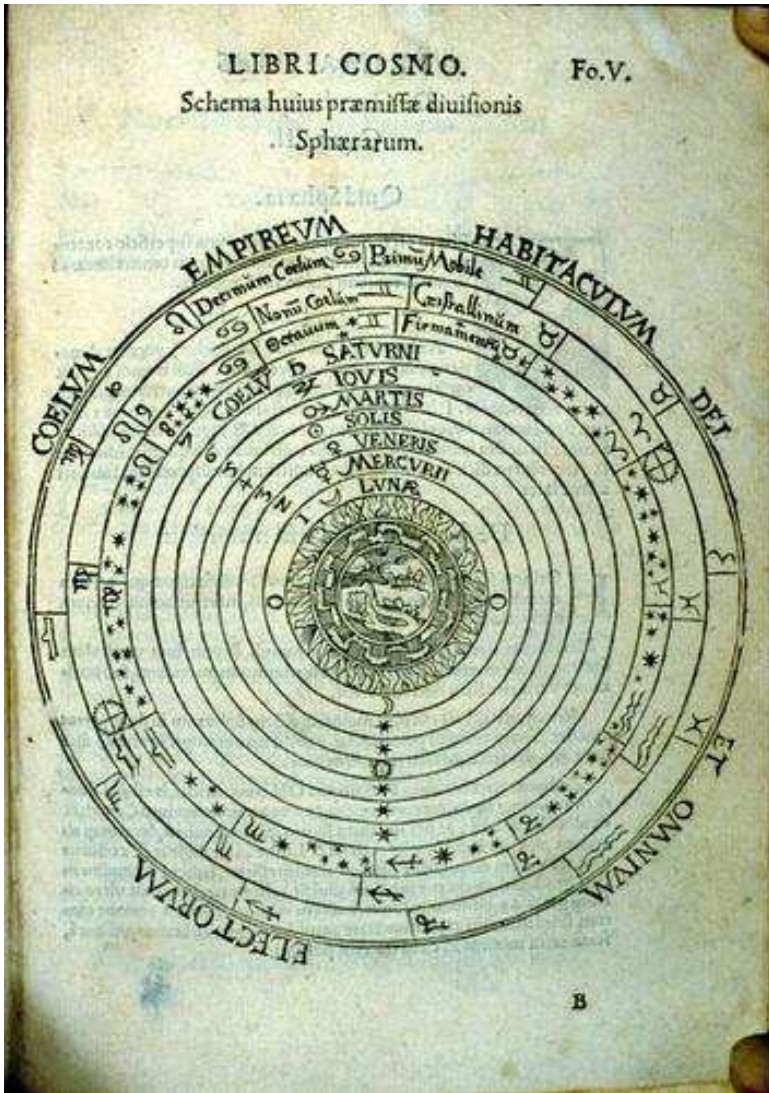 LIBRI COSMO. Fo.V.
Schema huius præmissæ diuisionis
Sphærarum.
COELVM EMPIREVM HABITACVLVM DEI ET OMNIVM ELECTORVM
Decimum Coelum Primũ Mobile
Nonũ Coelum Cristallinum
Octauum Firmamentũ
COELV SATVRNI
IOVIS
MARTIS
SOLIS
VENERIS
MERCVRII
LVNÆ
7
6
5
4
3
2
1
B